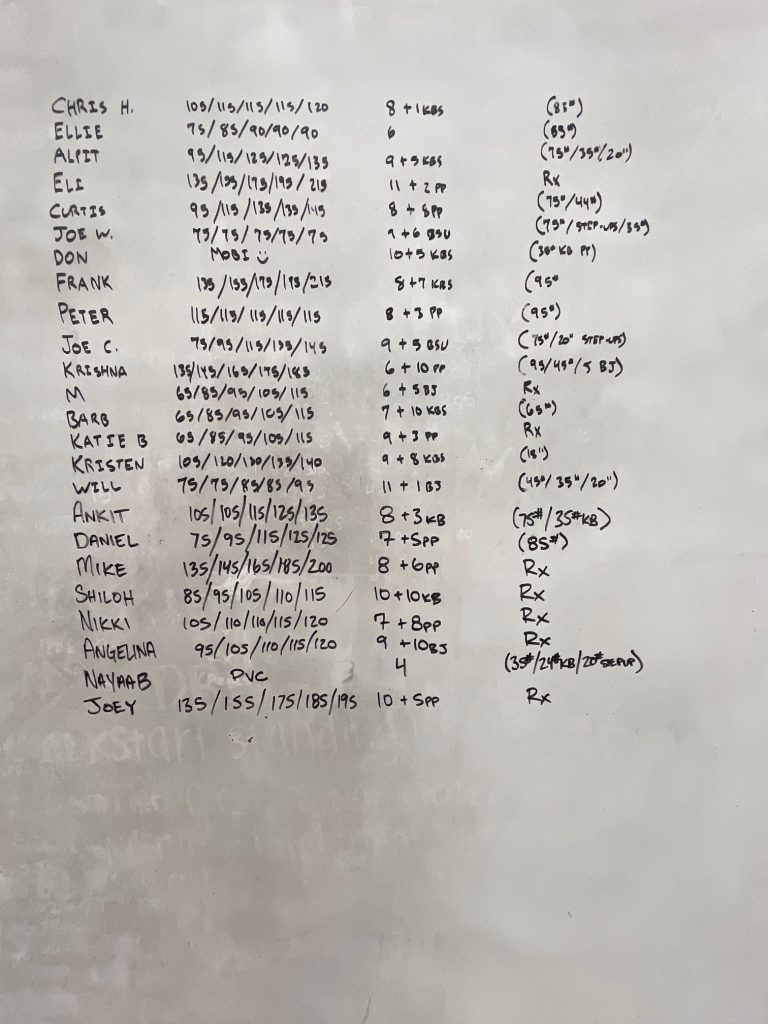 CHRIS H. 105/115/115/115/120 8 + 1 KBS (85#)
ELLIE 75/85/90/90/90 6 (55#)
ALPIT 95/115/125/125/135 9 + 5 KBS (75#/35#/20")
ELI 135/155/175/195/215 11 + 2 PP Rx
CURTIS 95/115/135/135/145 8 + 8PP (75#/44#)
JOE W. 75/75/75/75/75 9 + 6 BSU (75#/STEP-UPS/35#)
DON MOBI 10+5 KBS (35# KB PP)
FRANK 135/155/175/195/215 8+7 KBS (95#
PETER 115/115/115/115/115 8 + 3 PP (95#)
JOE C. 75/95/115/135/145 9 + 5 BSU (75#/20" STEP-UPS)
KRISHNA 135/145/165/175/185 6 + 10 PP (95/45#/5 BJ)
M 65/85/95/105/115 6 + 5 BJ Rx
BARB 65/85/95/105/115 7 + 10 KBS (65#)
KATIE B 65/85/95/105/115 9 + 3 PP Rx
KRISTEN 105/120/130/135/140 9 + 8 KBS (18")
WILL 75/75/85/85/95 11 + 1 BJ (45#/35#/20")
ANKIT 105/105/115/125/135 8 +3KB (75#/35#KB)
DANIEL 75/95/115/125/125 7 +5PP (85#)
MIKE 135/145/165/185/200 8 +6PP Rx
SHILOH 85/95/105/110/115 10+10KB Rx
NIKKI 105/110/110/115/120 7 +8PP Rx
ANGELINA 95/105/110/115/120 9 +10BJ Rx
NAYAAB PVC 4 (35#/24#KB/20#STEPUP)
JOEY 135/155/175/185/195 10 +5PP Rx